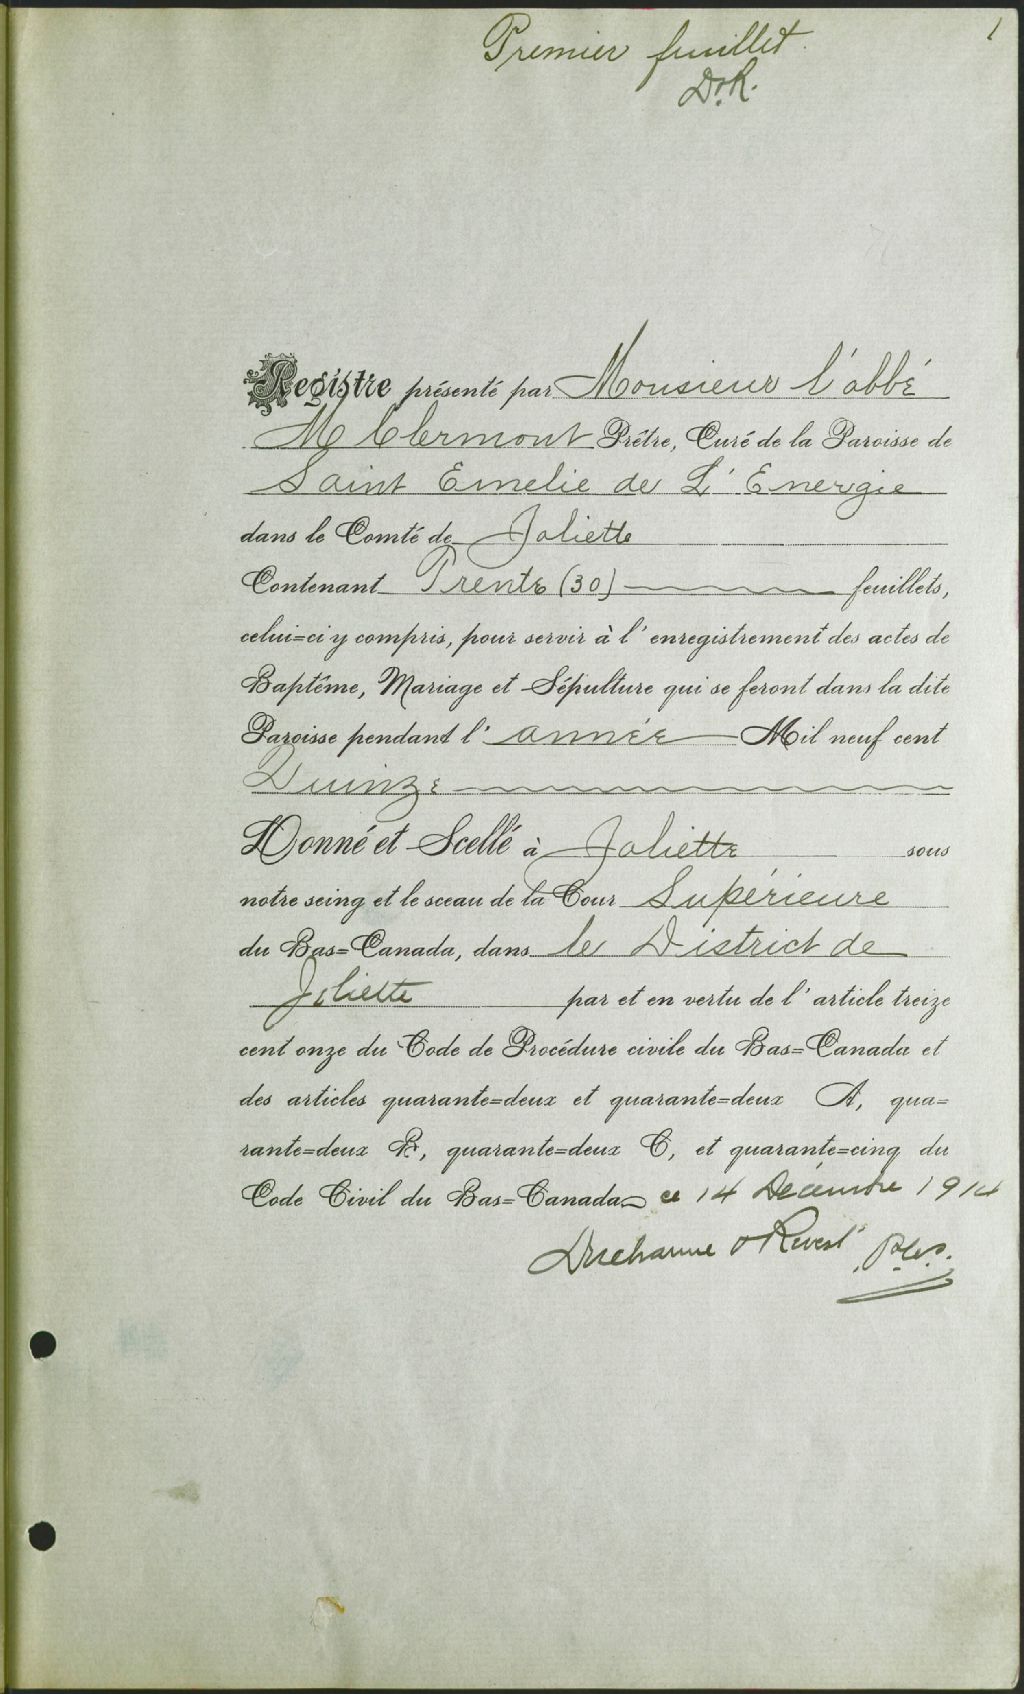 1
Premier feuillet.
D&R.
Registre présenté par Monsieur l'abbé
M Clermont Prêtre, Curé de la Paroisse de
Saint Emelie de L'Energie
dans le Comté de Joliette
Contenant Trente (30) feuillets,
celui=ci y compris, pour servir à l'enregistrement des actes de
Baptême, Mariage et Sépulture qui se feront dans la dite
Paroisse pendant l'année Mil neuf cent
Quinze
Donné et Scellé à Joliette sous
notre seing et le sceau de la Cour Supérieure
du Bas=Canada, dans le District de
Joliette par et en vertu de l'article treize
cent onze du Code de Procédure civile du Bas=Canada et
des articles quarante=deux et quarante=deux A, qua=
rante=deux B, quarante=deux C, et quarante=cinq du
Code Civil du Bas=Canada ce 14 Décembre 1914
Ducharme & Rivest P.C.S.